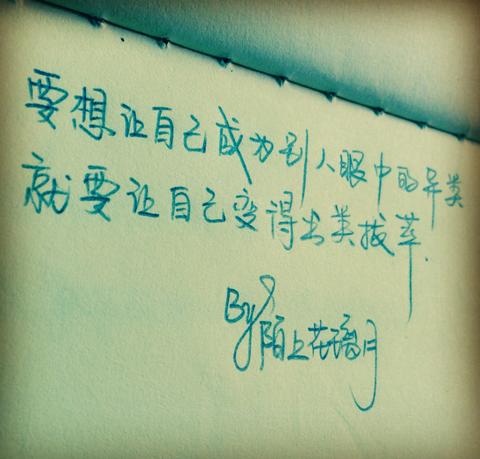 要想让自己成为别人眼中的异类
就要让自己变得出类拔萃.
By 陌上花璃月